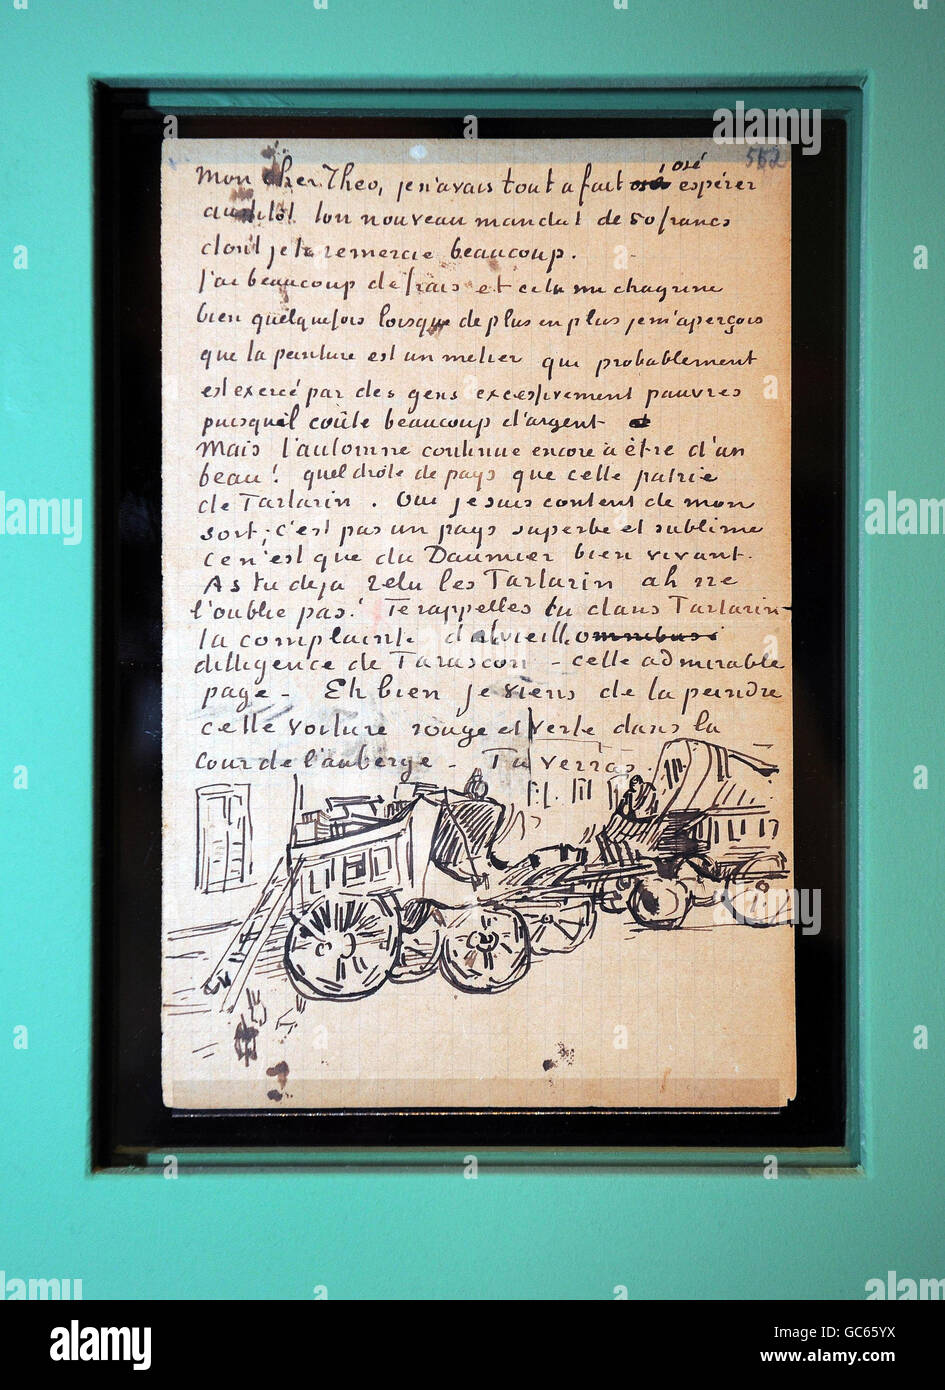 552
osé
Mon cher Theo, je n'avais tout a fait osé espérer
aussitôt ton nouveau mandat de 50 francs
dont je te remercie beaucoup.
J'ai beaucoup de frais et cela me chagrine
bien quelquefois lorsque de plus en plus je m'aperçois
que la peinture est un metier que probablement
est exercé par des gens excessivement pauvres
puisqu'il coûte beaucoup d'argent
Mais l'automne continue encore a être d'un
beau! quel drôle de pays que cette patrie
de Tartarin. Oui je suis content de mon
sort, c'est pas un pays superbe et sublime
ce n'est que du Daumier bien vivant.
As tu deja relu les Tartarin ah ne
l'oublie pas! Te rappelles tu dans Tartarin
la complainte de la vieille omnibus
dilligence de Tarascon – cette admirable
page – Eh bien je viens de la peindre
cette voiture rouge et verte dans la
cour de l'auberge – Tu verras.
alamy
Image ID: GC65YX
www.alamy.com